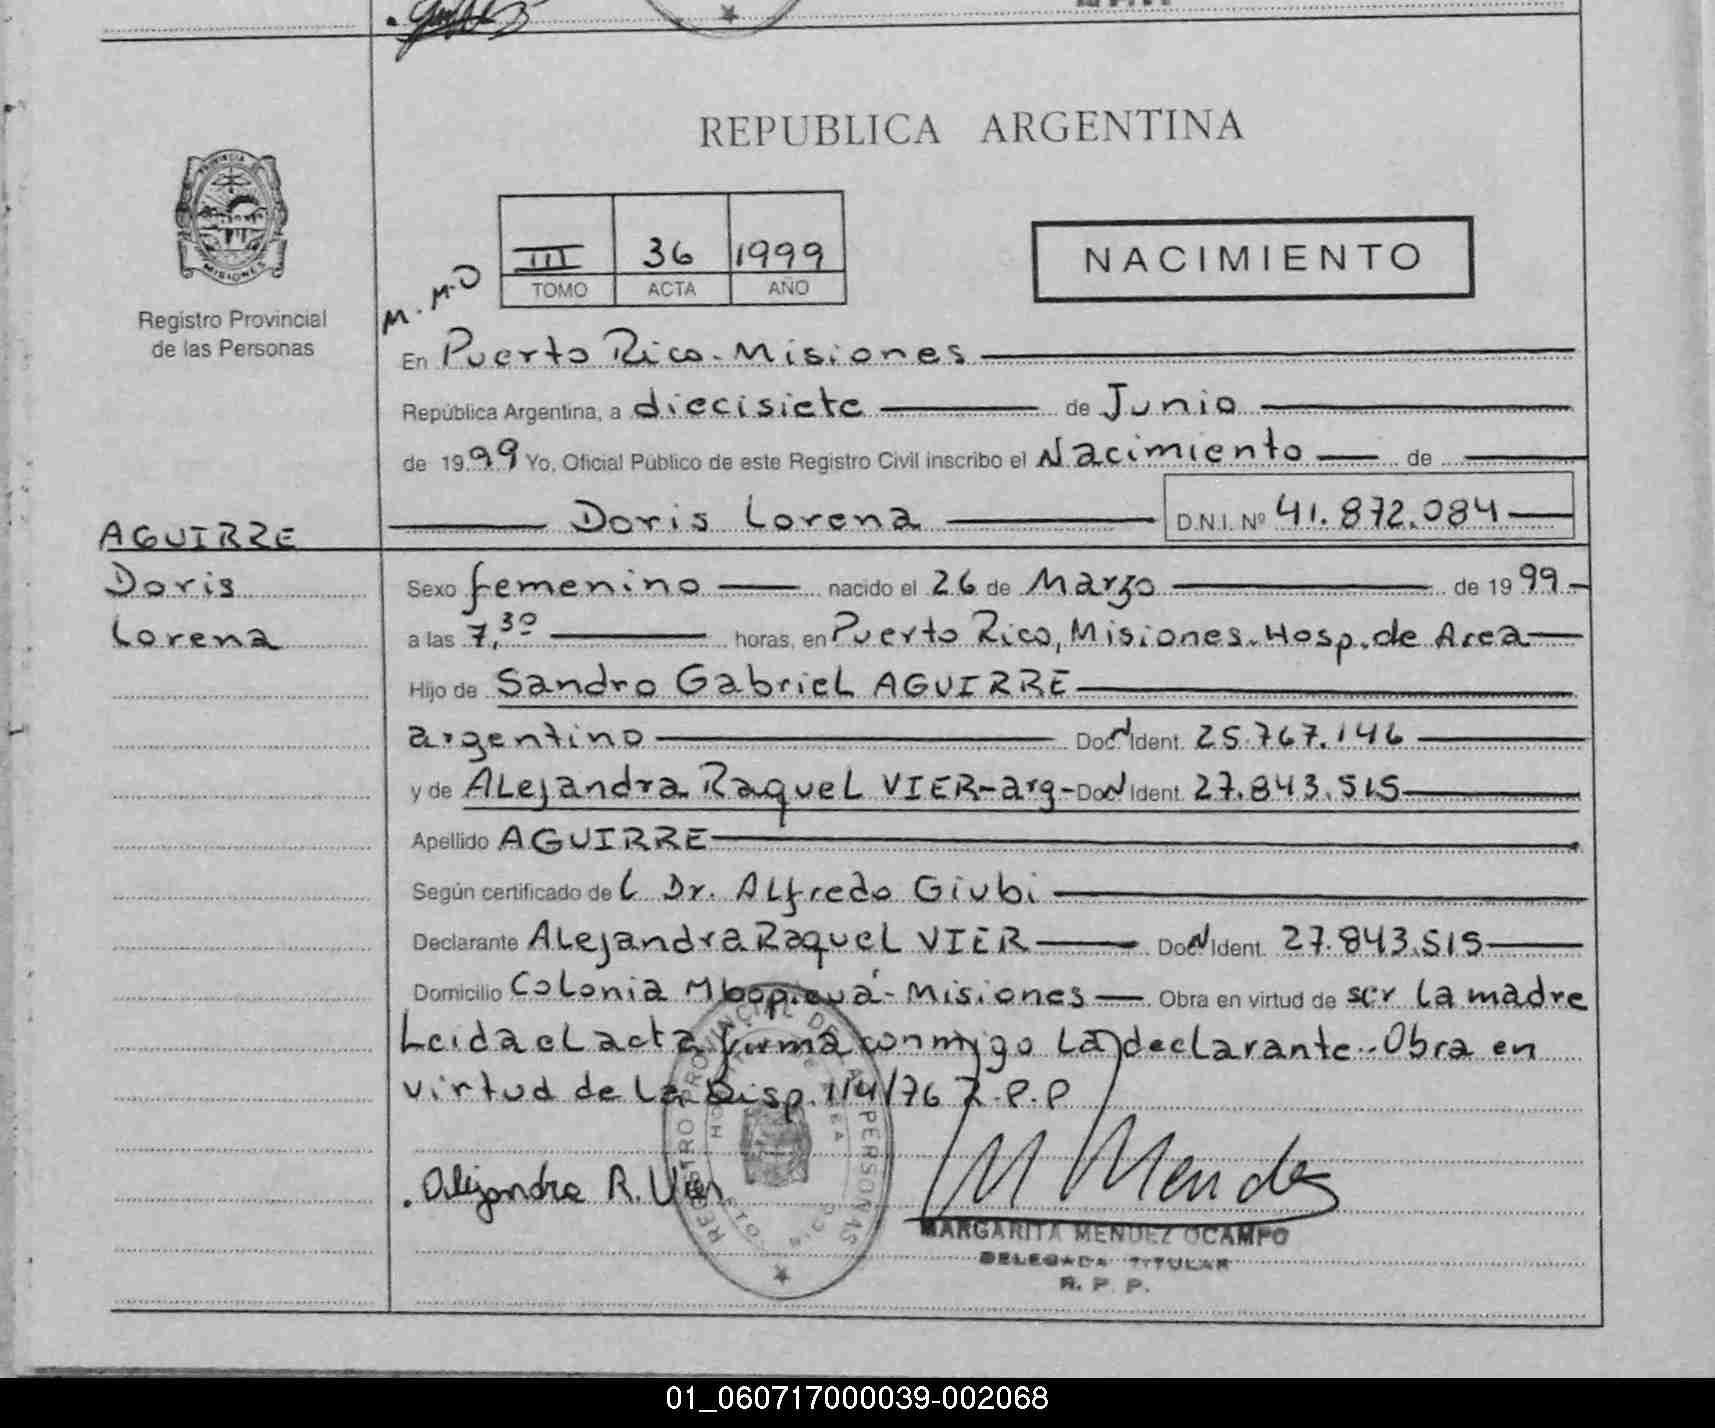 REPUBLICA ARGENTINA
PROVINCIA DE
MISIONES
Registro Provincial
de las Personas
III 36 1999
TOMO ACTA AÑO
NACIMIENTO
M.M.O
En Puerto Rico - Misiones
República Argentina, a diecisiete de Junio
de 1999 Yo, Oficial Público de este Registro Civil inscribo el Nacimiento de
Doris Lorena D.N.I. Nº 41.872.084
AGUIRRE
Doris
Lorena
Sexo femenino nacido el 26 de Marzo de 1999
a las 7,30 horas, en Puerto Rico, Misiones - Hosp. de Area
Hijo de Sandro Gabriel AGUIRRE
argentino Doc. N Ident. 25.767.146
y de Alejandra Raquel VIER - arg - Doc. N Ident. 27.843.515
Apellido AGUIRRE
Según certificado de l Dr. Alfredo Giubi
Declarante Alejandra Raquel VIER Doc. N Ident. 27.843.515
Domicilio Colonia Mbopicuá - Misiones Obra en virtud de ser la madre
Leida el acta firma conmigo la declarante - Obra en
virtud de la Disp. 114/76 R.P.P
REGISTRO PROVINCIAL DE LAS PERSONAS
Alejandra R. Vier
M Mendez
MARGARITA MENDEZ OCAMPO
DELEGADA TITULAR
R. P. P.
01_060717000039-002068